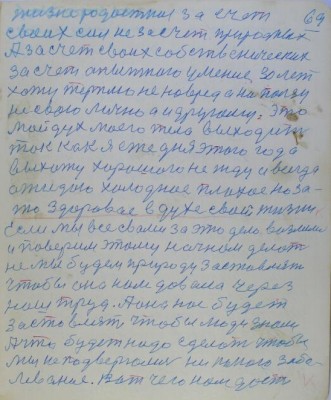 жизнерадостний за счет 69
своих сил не за счет природных
А за счет своих собственических
за счет опытного умение 30 лет
хожу терплю не новреда на ползу
не свою лично а другому. Это
мой дух моего тела выходить
так как я еже дня этого года
выхожу хорошого не жду и всегда
ожидаю холодное плохое но за-
то здоровае в духе свой жизни
Если мы все сваи за это дело возмем
и поверим этому начнем делать
не мы будем природу заставлять
чтобы она нам давала через
наш труд. А она нас будет
заставлять чтобы люди знали
А что будет надо сделать чтобы
мы не подвергалис никакого забо-
левание. Вот чего нам даст